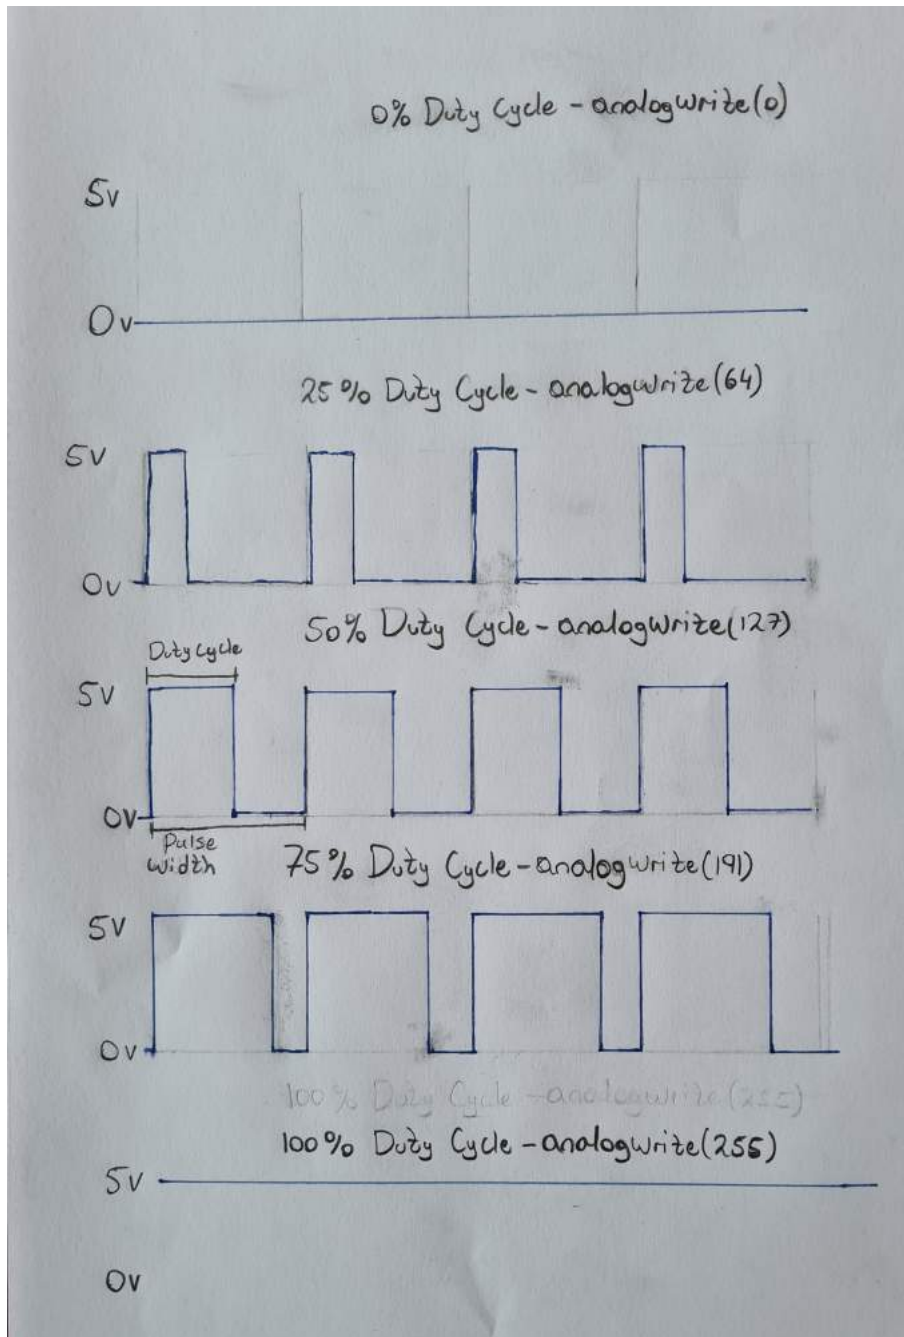 0% Duty Cycle - analogwrite(0)
5v
0v
25% Duty Cycle - analogwrite(64)
5v
0v
50% Duty Cycle - analogwrite(127)
Duty Cycle
5v
0v
Pulse
width
75% Duty Cycle - analogwrite(191)
5v
0v
100% Duty Cycle - analogwrite(255)
100% Duty Cycle - analogwrite(255)
5v
0v